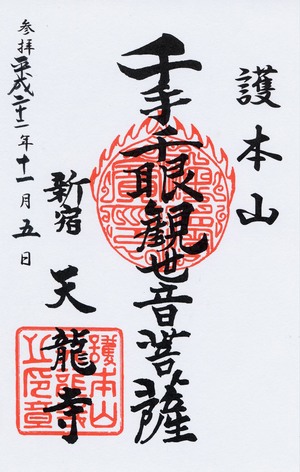 護本山
千手千眼観世音菩薩
新宿 天龍寺
参拝 平成二十二年十一月五日
護本山天龍寺之印章